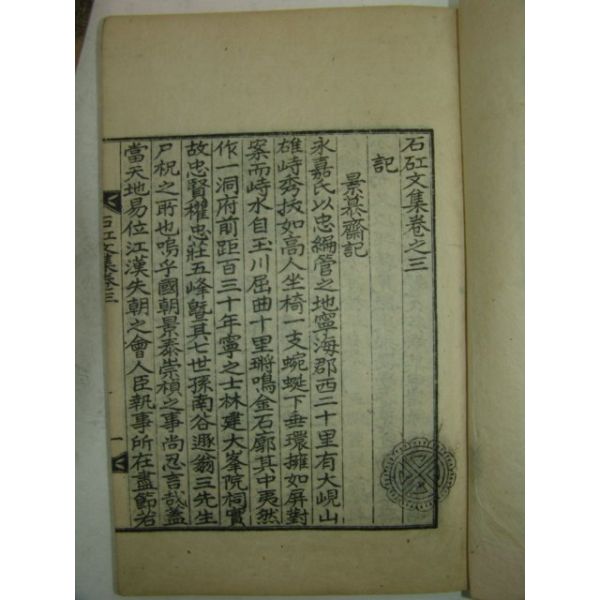 石矼文集卷之三
記
景慕齋記
永嘉氏以忠編管之地寧海郡西二十里有大峴山
雄峙秀拔如高人坐椅一支蜿蜒下垂環擁如屏對
案而峙水自玉川屈曲十里鏘鳴金石廓其中夷然
作一洞府前距百三十年寧之士林建大峯院祠實
故忠賢權忠莊五峰曁其七世孫南谷遯翁三先生
尸柷之所也嗚乎國朝景泰崇楨之事尚忍言哉盖
當天地易位江漢失朝之會人臣執事所在盡節若
石矼文集卷三
一